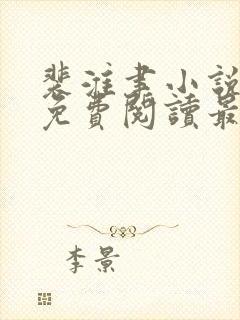 裴淮聿小說
免費閱讀最
李景